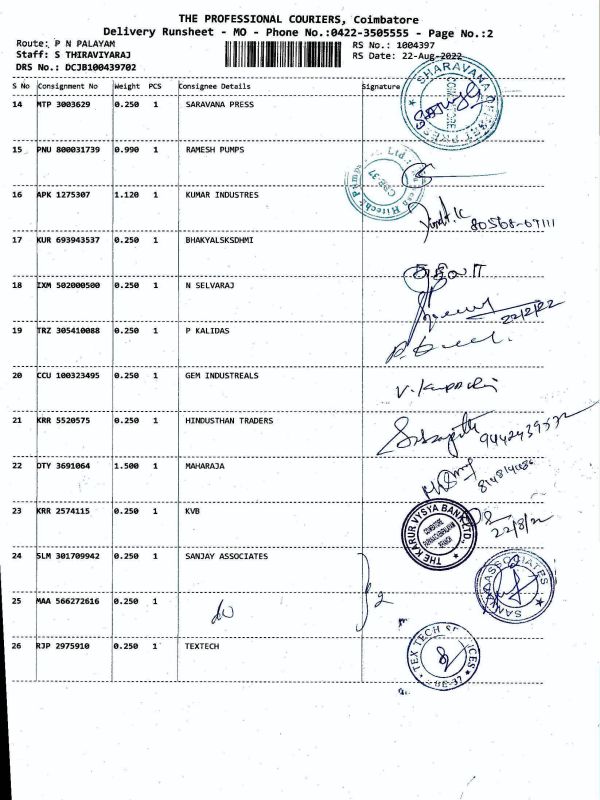 THE PROFESSIONAL COURIERS, Coimbatore
Delivery Runsheet - MO - Phone No.:0422-3505555 - Page No.:2
Route: P N PALAYAM
Staff: S THIRAVIYARAJ
DRS No.: DCJB100439702
RS No.: 1004397
RS Date: 22-Aug-2022
S No Consignment No Weight PCS Consignee Details Signature
14 MTP 3003629 0.250 1 SARAVANA PRESS
SHARAVANA
COIMBATORE
15 PNU 800031739 0.990 1 RAMESH PUMPS
Hitech Pumps Ltd.
CBE-37
16 APK 1275307 1.120 1 KUMAR INDUSTRES
80568-07111
17 KUR 693943537 0.250 1 BHAKYALSKSDHMI
18 IXM 502000500 0.250 1 N SELVARAJ
22/8/22
19 TRZ 305410088 0.250 1 P KALIDAS
20 CCU 100323495 0.250 1 GEM INDUSTREALS
21 KRR 5520575 0.250 1 HINDUSTHAN TRADERS
22 DTY 3691064 1.500 1 MAHARAJA
23 KRR 2574115 0.250 1 KVB
THE KARUR VYSYA BANK LTD.,
COIMBATORE
BRANCH
22/8/22
24 SLM 301709942 0.250 1 SANJAY ASSOCIATES
SANJAY ASSOCIATES
25 MAA 566272616 0.250 1 do
2
26 RJP 2975910 0.250 1 TEXTECH
TEX TECH
CBE-37